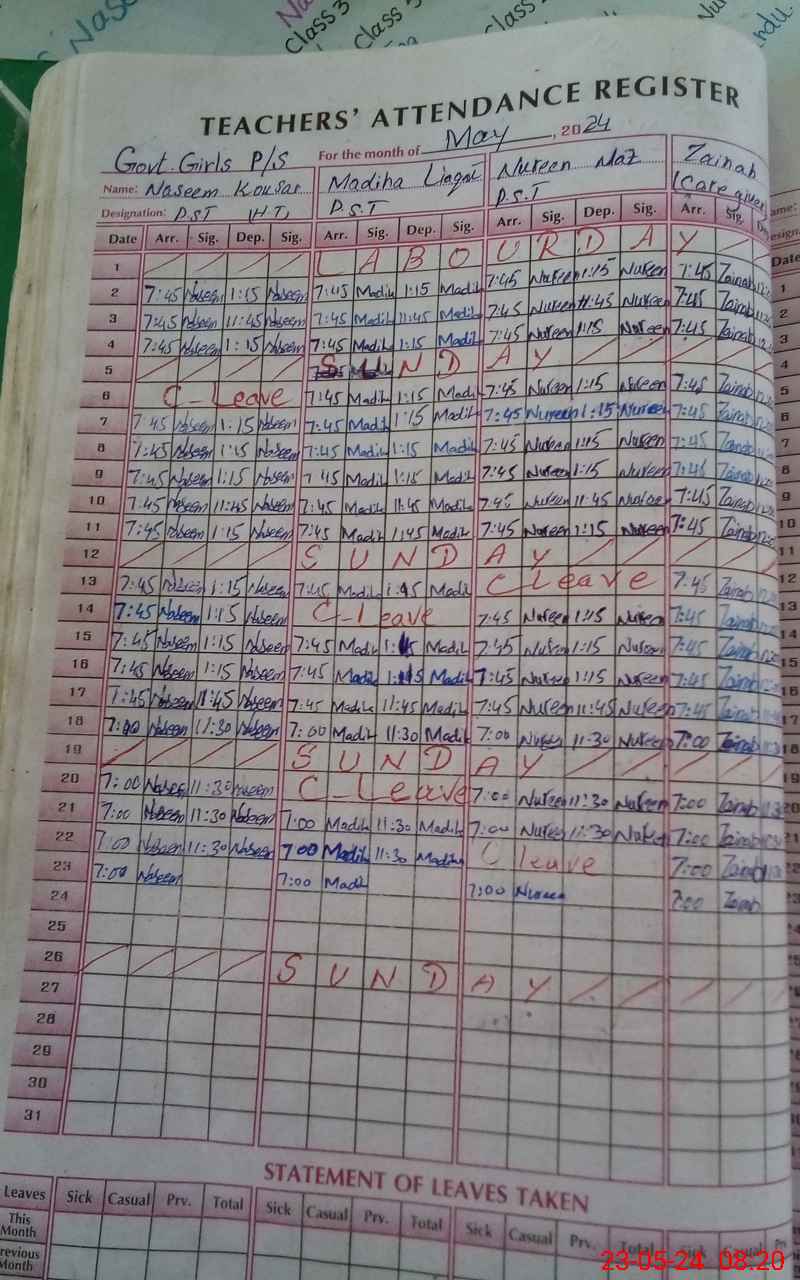 Class 3
Class 3
Class
TEACHERS' ATTENDANCE REGISTER
Govt. Girls P/S For the month of May, 2024
Name: Naseem Kousar Madiha Liaqat Nureen Naz Zainab
Designation: P.S.T (H.T) P.S.T P.S.T (Care giver
Date Arr. Sig. Dep. Sig. Arr. Sig. Dep. Sig. Arr. Sig. Dep. Sig. Arr. Sig.
1 L A B O U R D A Y
2 7:45 Naseem 1:15 Naseem 7:45 Madih 1:15 Madih 7:45 Nureen 1:15 Nureen 7:45 Zainab
3 7:45 Naseem 11:45 Naseem 7:45 Madih 11:45 Madih 7:45 Nureen 11:45 Nureen 7:45 Zainab
4 7:45 Naseem 1:15 Naseem 7:45 Madih 1:15 Madih 7:45 Nureen 1:15 Nureen 7:45 Zainab
5 S U N D A Y
6 C-Leave 7:45 Madih 1:15 Madih 7:45 Nureen 1:15 Nureen 7:45 Zainab
7 7:45 Naseem 1:15 Naseem 7:45 Madih 1:15 Madih 7:45 Nureen 1:15 Nureen 7:45 Zainab
8 7:45 Naseem 1:15 Naseem 7:45 Madih 1:15 Madih 7:45 Nureen 1:15 Nureen 7:45 Zainab
9 7:45 Naseem 1:15 Naseem 7:45 Madih 1:15 Madih 7:45 Nureen 1:15 Nureen 7:45 Zainab
10 7:45 Naseem 11:45 Naseem 7:45 Madih 11:45 Madih 7:45 Nureen 11:45 Nureen 7:45 Zainab
11 7:45 Naseem 1:15 Naseem 7:45 Madih 1:45 Madih 7:45 Nureen 1:15 Nureen 7:45 Zainab
12 S U N D A Y
13 7:45 Naseem 1:15 Naseem 7:45 Madih 1:45 Madih C Leave 7:45 Zainab
14 7:45 Naseem 1:15 Naseem C-Leave 7:45 Nureen 1:15 Nureen 7:45 Zainab
15 7:45 Naseem 1:15 Naseem 7:45 Madih 1:15 Madih 7:45 Nureen 1:15 Nureen 7:45 Zainab
16 7:45 Naseem 1:15 Naseem 7:45 Madih 1:15 Madih 7:45 Nureen 1:15 Nureen 7:45 Zainab
17 7:45 Naseem 11:45 Naseem 7:45 Madih 11:45 Madih 7:45 Nureen 11:45 Nureen 7:45 Zainab
18 7:00 Naseem 11:30 Naseem 7:00 Madih 11:30 Madih 7:00 Nureen 11:30 Nureen 7:00 Zainab
19 S U N D A Y
20 7:00 Naseem 11:30 Naseem C-Leave 7:00 Nureen 11:30 Nureen 7:00 Zainab
21 7:00 Naseem 11:30 Naseem 7:00 Madih 11:30 Madih 7:00 Nureen 11:30 Nureen 7:00 Zainab
22 7:00 Naseem 11:30 Naseem 7:00 Madih 11:30 Madiha C leave 7:00 Zainab
23 7:00 Naseem 7:00 Madih 7:00 Nureen 7:00 Zainab
24
25
26 S U N D A Y
27
28
29
30
31
STATEMENT OF LEAVES TAKEN
Leaves Sick Casual Prv. Total Sick Casual Prv. Total Sick Casual Prv. Total Sick Casual
This Month
revious Month
23-05-24 08.20